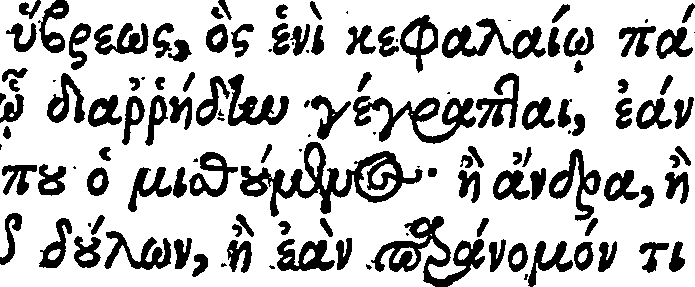 ὕβρεως, ὃς ἑνὶ κεφαλαίῳ πά
ᾧ διαῤῥήδην γέγραπται, ἐάν
που ὁ μισθούμενος· ἢ ἄνδρα, ἢ
δούλων, ἢ ἐὰν παράνομόν τι